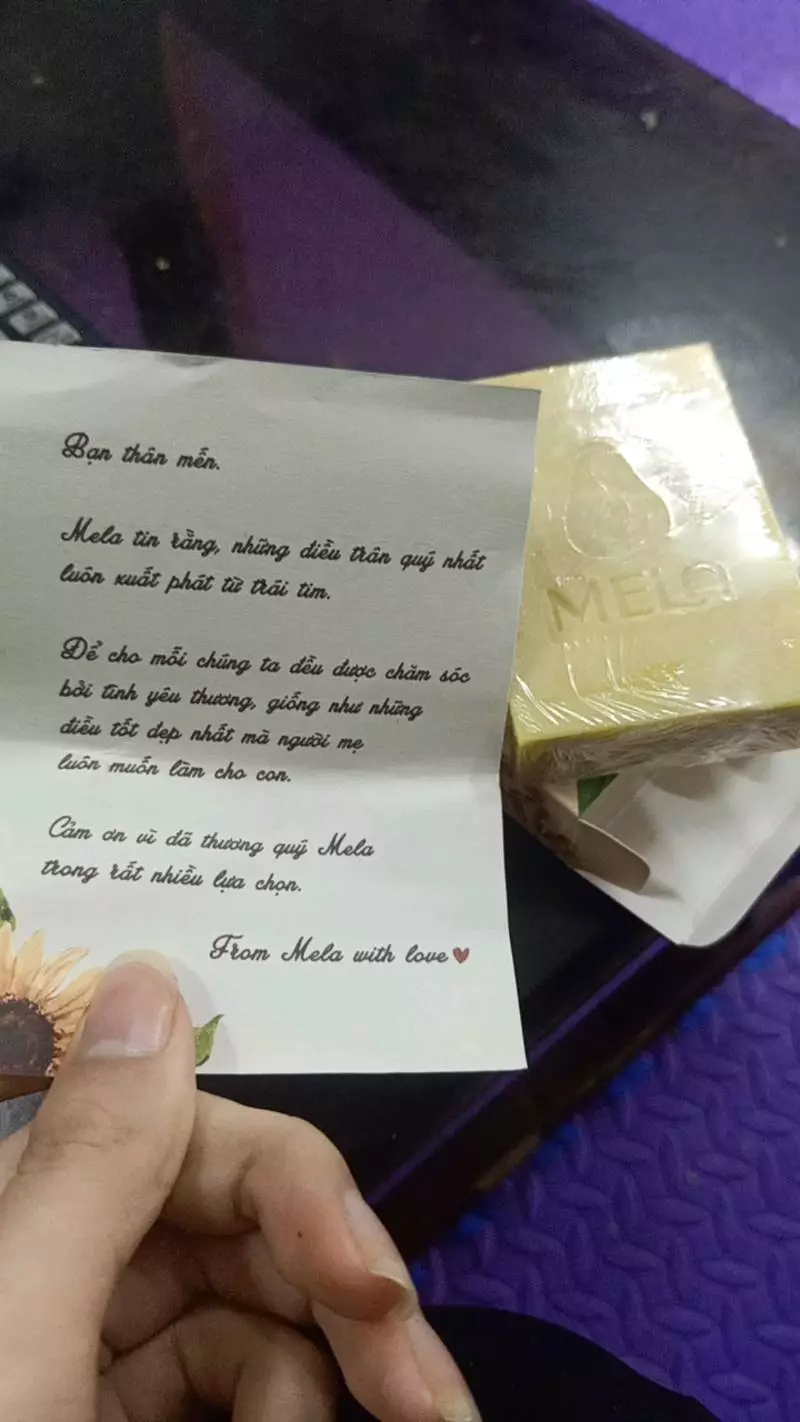 Bạn thân mến.
Mela tin rằng, những điều trân quý nhất
luôn xuất phát từ trái tim.
Để cho mỗi chúng ta đều được chăm sóc
bởi tình yêu thương, giống như những
điều tốt đẹp nhất mà người mẹ
luôn muốn làm cho con.
Cảm ơn vì đã thương quý Mela
trong rất nhiều lựa chọn.
From Mela with love
MELA